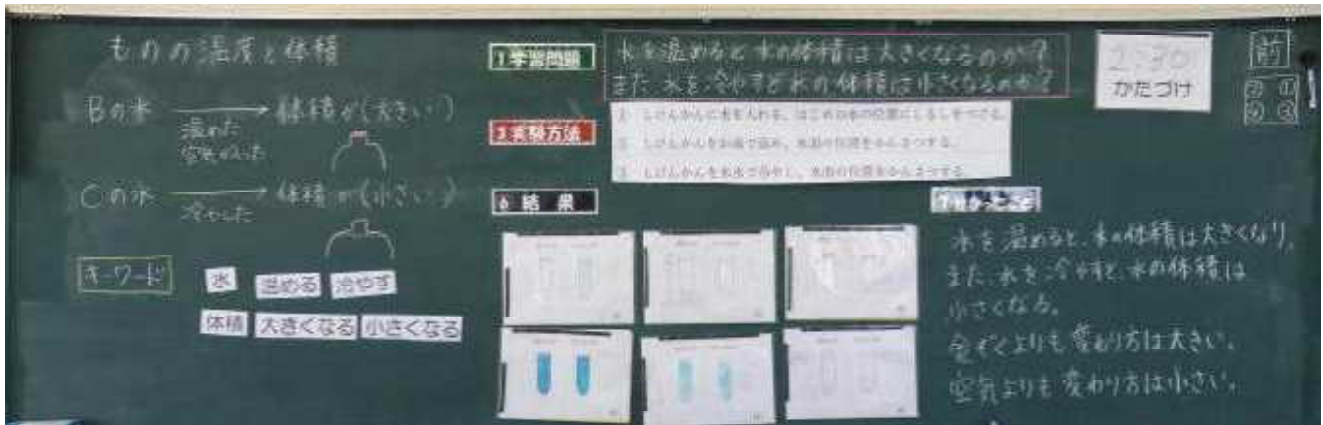 ものの温度と体積
Bの水 → 体積が(大きい)
温めた
空気が入った
Cの水 → 体積が(小さい)
冷やした
キーワード
水 温める 冷やす
体積 大きくなる 小さくなる
1 学習問題
水を温めると水の体積は大きくなるのか?
また、水を冷やすと水の体積は小さくなるのか?
実験方法
① しけんかんに水を入れる。はじめの水の位置にしるしをつける。
② しけんかんをお湯で温め、水面の位置をかんさつする。
③ しけんかんを氷水で冷やし、水面の位置をかんさつする。
6 結果
2:30
かたづけ
前
② ①
④ ③
水を温めると、水の体積は大きくなり、
また、水を冷やすと、水の体積は
小さくなる。
金ぞくよりも変わり方は大きい。
空気よりも変わり方は小さい。